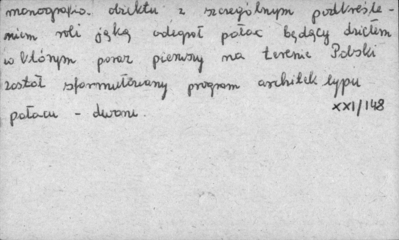 monografia obiektu z szczególnym podkreśle-
niem roli jaką odegrał pałac będący dziełem
w którym poraz pierwszy na terenie Polski
został sformułowany program architek typu
pałacu - dworu.
XXI/148